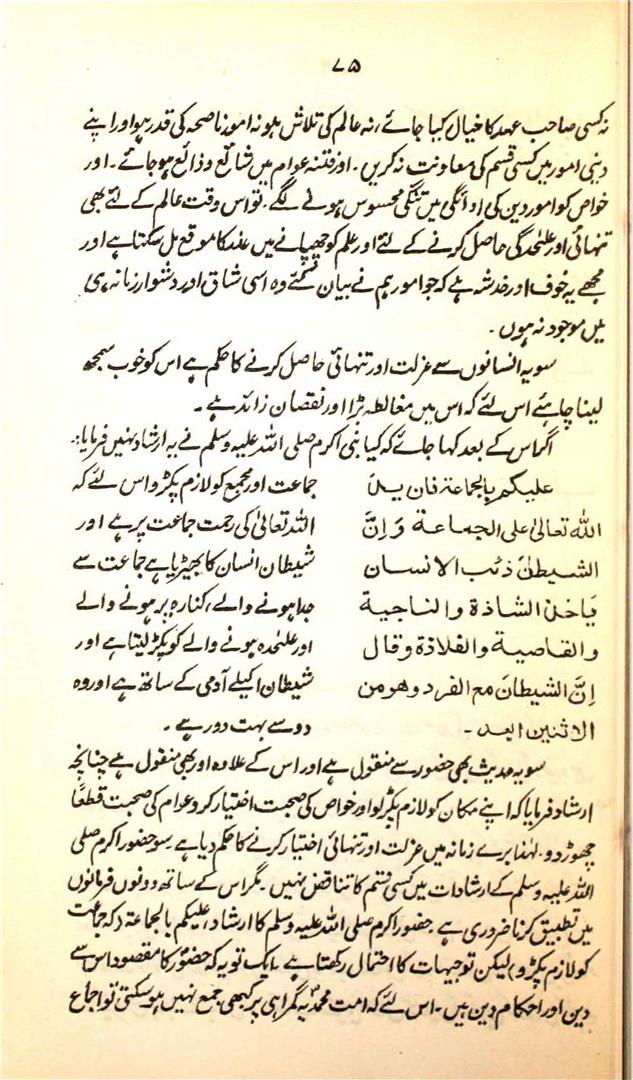 ۷۵
نہ کسی صاحب عہد کا خیال کیا جائے، نہ عالم کی تلاش ہو نہ امور ناصحہ کی قدر ہو اور اپنے
دینی امور میں کسی قسم کی معاونت نہ کریں۔ اور فتنہ عوام میں شائع و ذائع ہو جائے۔ اور
خواص کو امور دین کی ادائگی میں تنگی محسوس ہونے لگے۔ تو اس وقت عالم کے لئے بھی
تنہائی اور علٰحدگی حاصل کرنے کے لئے اور علم کو چھپانے میں عذر کا موقع مل سکتا ہے اور
مجھے یہ خوف اور خدشہ ہے کہ جو امور ہم نے بیان کئے وہ اسی شاق اور دشوار زمانہ ہی
میں موجود نہ ہوں۔
سو یہ انسانوں سے عزلت اور تنہائی حاصل کرنے کا حکم ہے اس کو خوب سمجھ
لینا چاہئے اس لئے کہ اس میں مغالطہ بڑا اور نقصان زائد ہے۔
اگر اس کے بعد کہا جائے کہ کیا نبی اکرم صلی اللہ علیہ وسلم نے یہ ارشاد نہیں فرمایا:۔
علیکم بالجماعۃ فان ید
اللہ تعالیٰ علی الجماعۃ وَاِنَّ
الشیطٰنَ ذئب الانسان
یَاخذ الشاذۃ والناجیۃ
والقاصیۃ والفلاذۃ وقال
اِنَّ الشیطانَ مع الفرد وھو من
الاثنین ابعد۔
جماعت اور مجمع کو لازم پکڑو اس لئے کہ
اللہ تعالیٰ کی رحمت جماعت پر ہے اور
شیطان انسان کا بھیڑیا ہے جماعت سے
جدا ہونے والے، کنارہ پر ہونے والے
اور علٰحدہ ہونے والے کو پکڑ لیتا ہے اور
شیطان اکیلے آدمی کے ساتھ ہے اور وہ
دو سے بہت دور ہے۔
سو یہ حدیث بھی حضور سے منقول ہے اور اس کے علاوہ اور بھی منقول ہے چنانچہ
ارشاد فرمایا کہ اپنے مکان کو لازم پکڑ لو اور خواص کی صحبت اختیار کرو عوام کی صحبت قطعًا
چھوڑ دو۔ لہٰذا برے زمانہ میں عزلت اور تنہائی اختیار کرنے کا حکم دیا ہے سو حضور اکرم صلی
اللہ علیہ وسلم کے ارشادات میں کسی قسم کا تناقض نہیں۔ مگر اس کے ساتھ دونوں فرمانوں
میں تطبیق کرنا ضروری ہے حضور اکرم صلی اللہ علیہ وسلم کا ارشاد، علیکم بالجماعۃ (کہ جماعت
کو لازم پکڑو) لیکن توجیہات کا احتمال رکھتا ہے۔ ایک تو یہ کہ حضورؐ کا مقصود اس سے
دین اور احکام دین ہیں۔ اس لئے کہ امت محمدیہ گمراہی پر کبھی جمع نہیں ہو سکتی تو اجماع